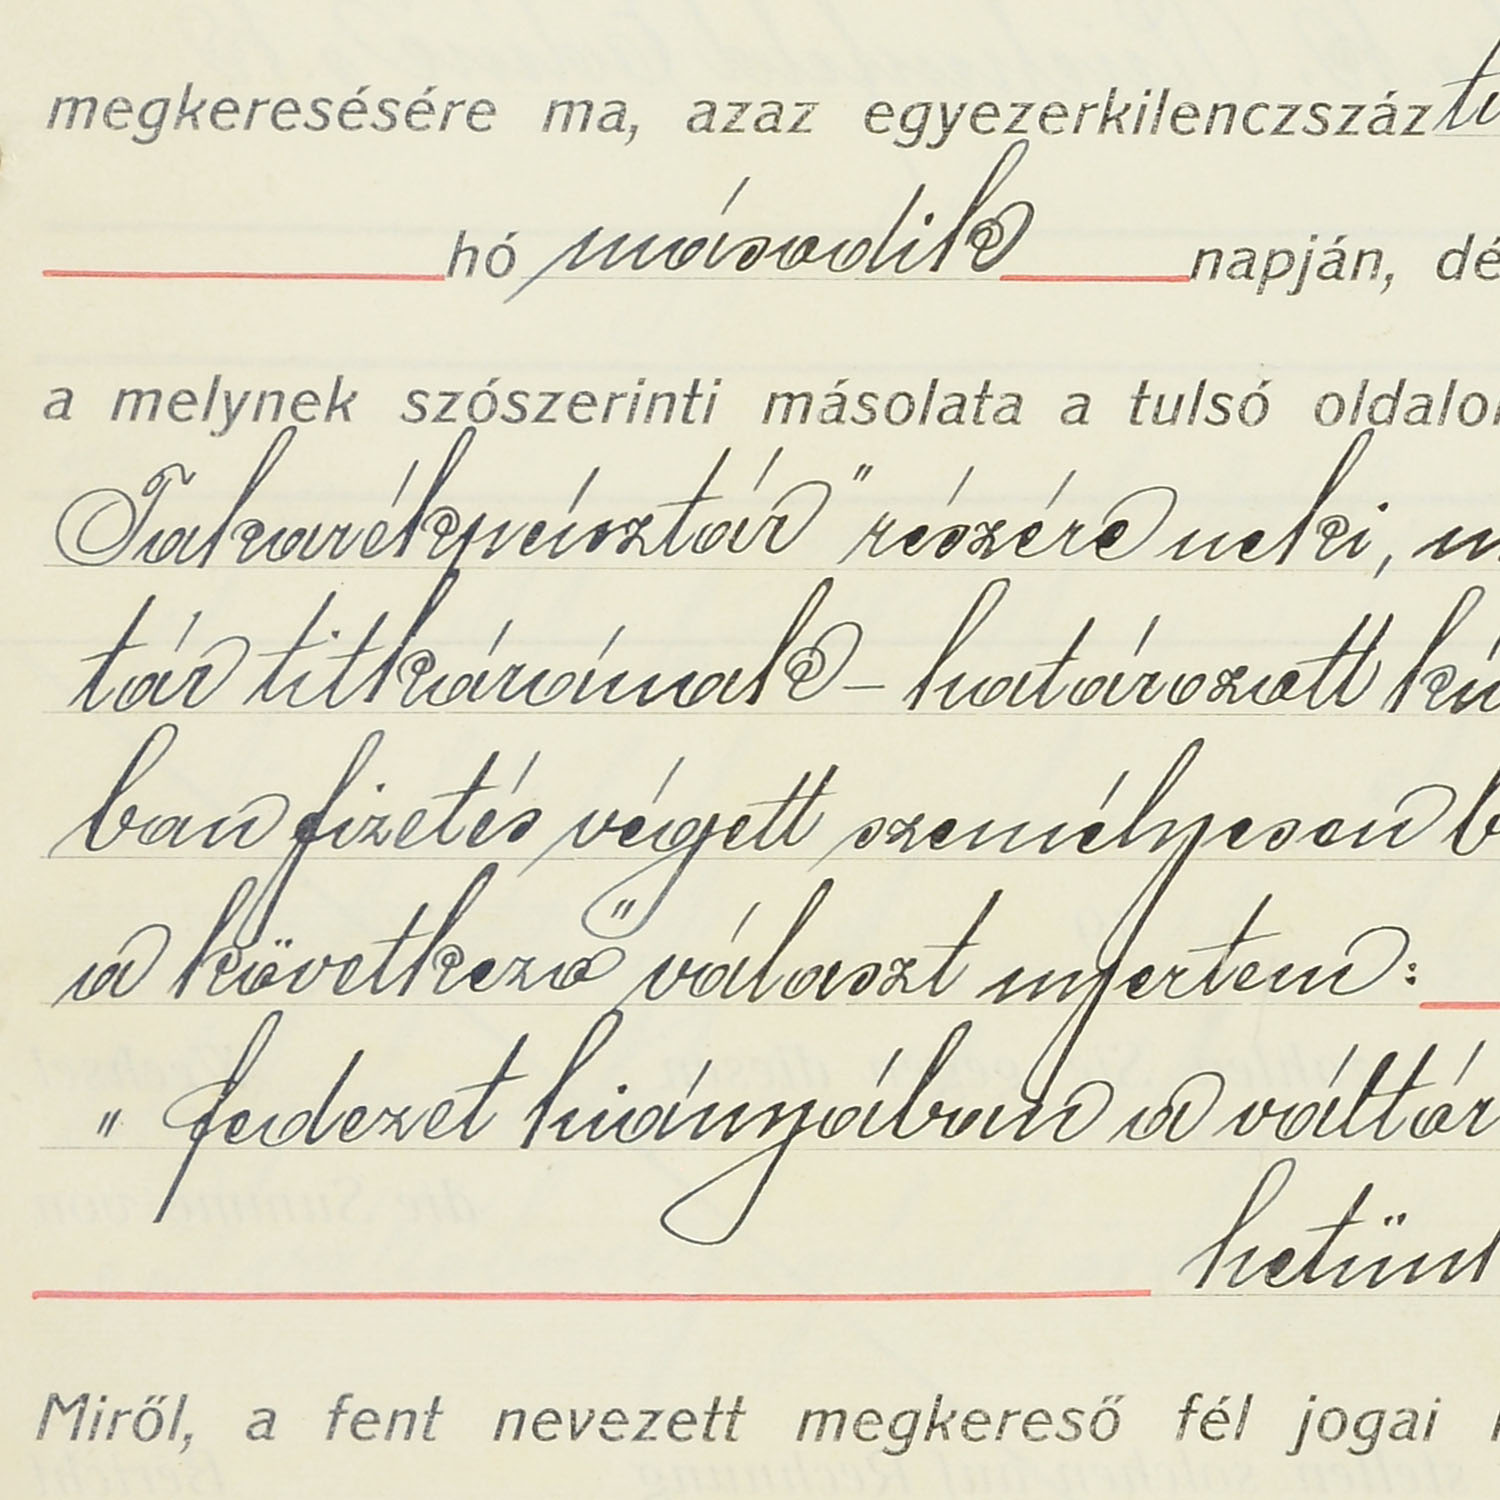 megkeresésére ma, azaz egyezerkilenczszáz
hó második napján, dé
a melynek szószerinti másolata a tulsó oldalon
Takarékpénztár" részére neki, m
tár titkárának – határozott ki
ban fizetés végett személyesen b
a következő választ nyertem:
" fedezet hiányában a váltór
hetünk
Miről, a fent nevezett megkereső fél jogai